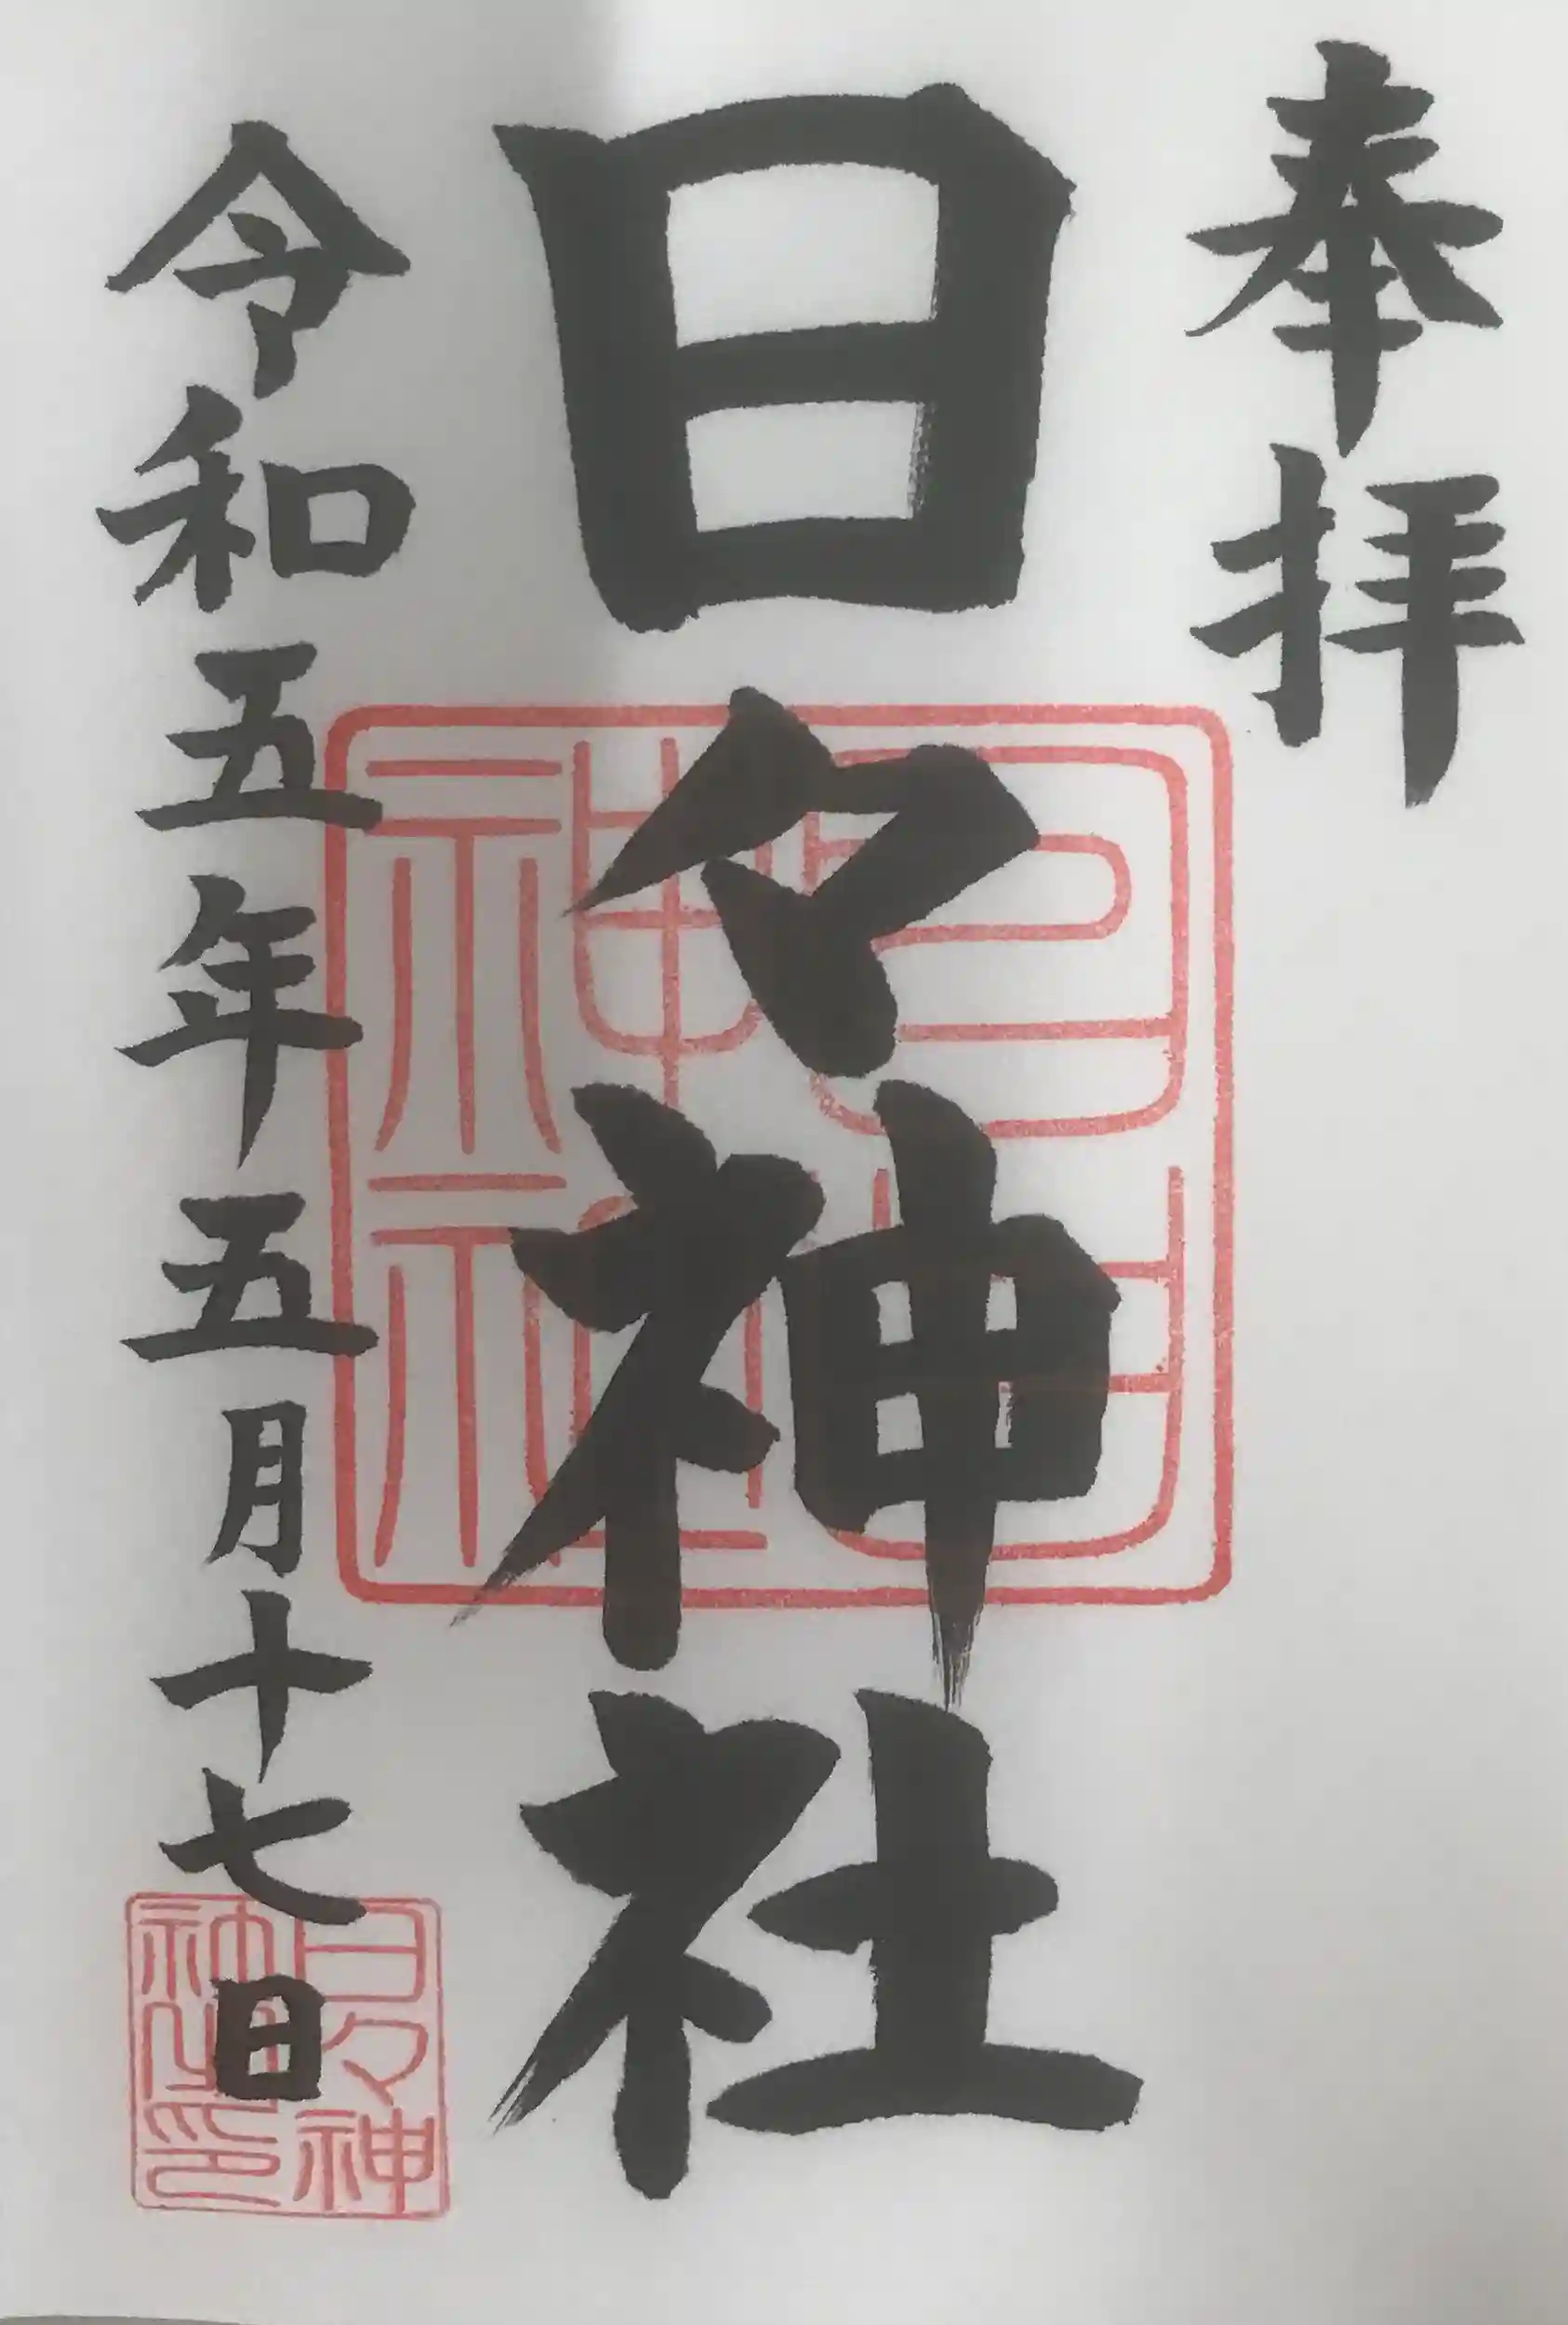 奉拝
日々神社
令和五年五月十七日
日々神
社之印